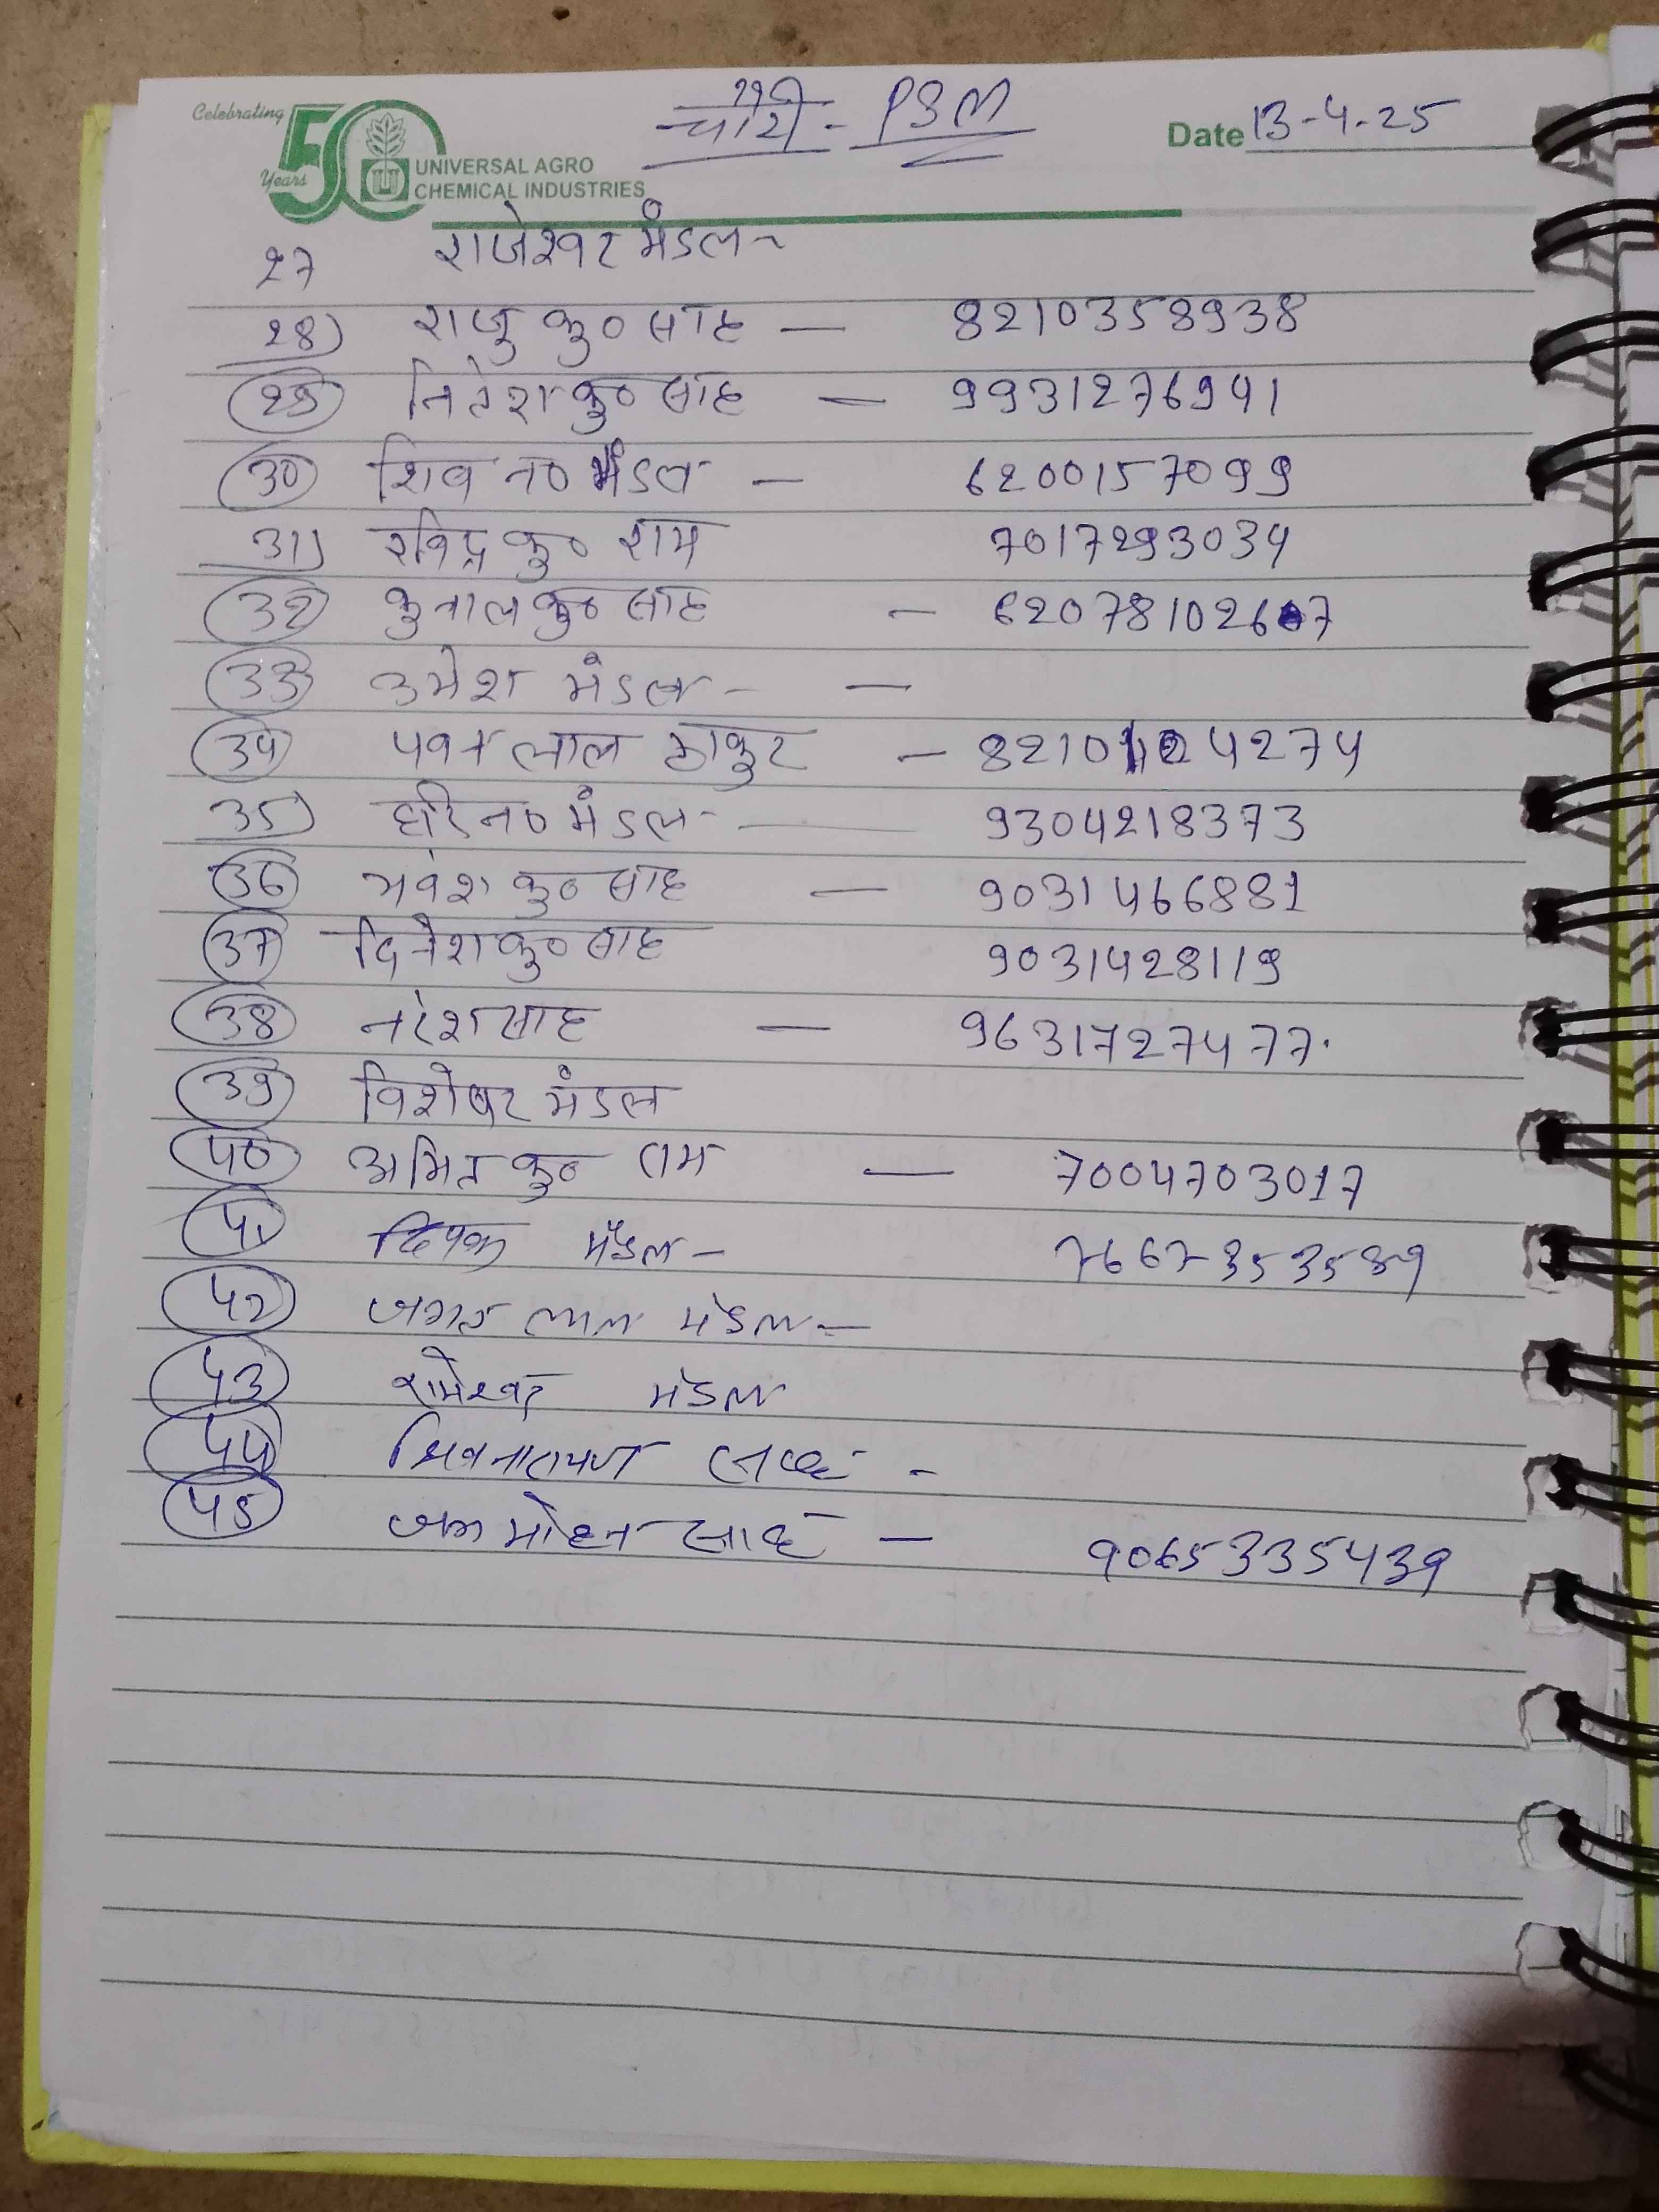 Celebrating
50
Years
UNIVERSAL AGRO
CHEMICAL INDUSTRIES
चोरी - PSM
Date 13-4-25
27 राजेश्वर मंडल -
28) राजु कु० साह — 8210358938
29 नितेश कु० साह — 9931276941
30 शिव ना० मंडल — 6200157099
31) रविद्र कु० राम 7017293034
32 कुनाल कु० साह — 6207810267
33 उमेश मंडल - —
34 पवन लाल ठाकुर — 8210124274
35) हरि ना० मंडल — 9304218373
36 भवेश कु० साह — 9031466881
37 दिनेश कु० साह 9031428119
38 नरेश साह — 9631727477.
39 विशेषर मंडल
40 अमित कु० राम — 7004703017
41 दिपक मंडल - 7667353589
42 जगत लाल मंडल —
43 रामेश्वर मंडल
44 शिवनारायण साह -
45 जग मोहन साह — 9065335439